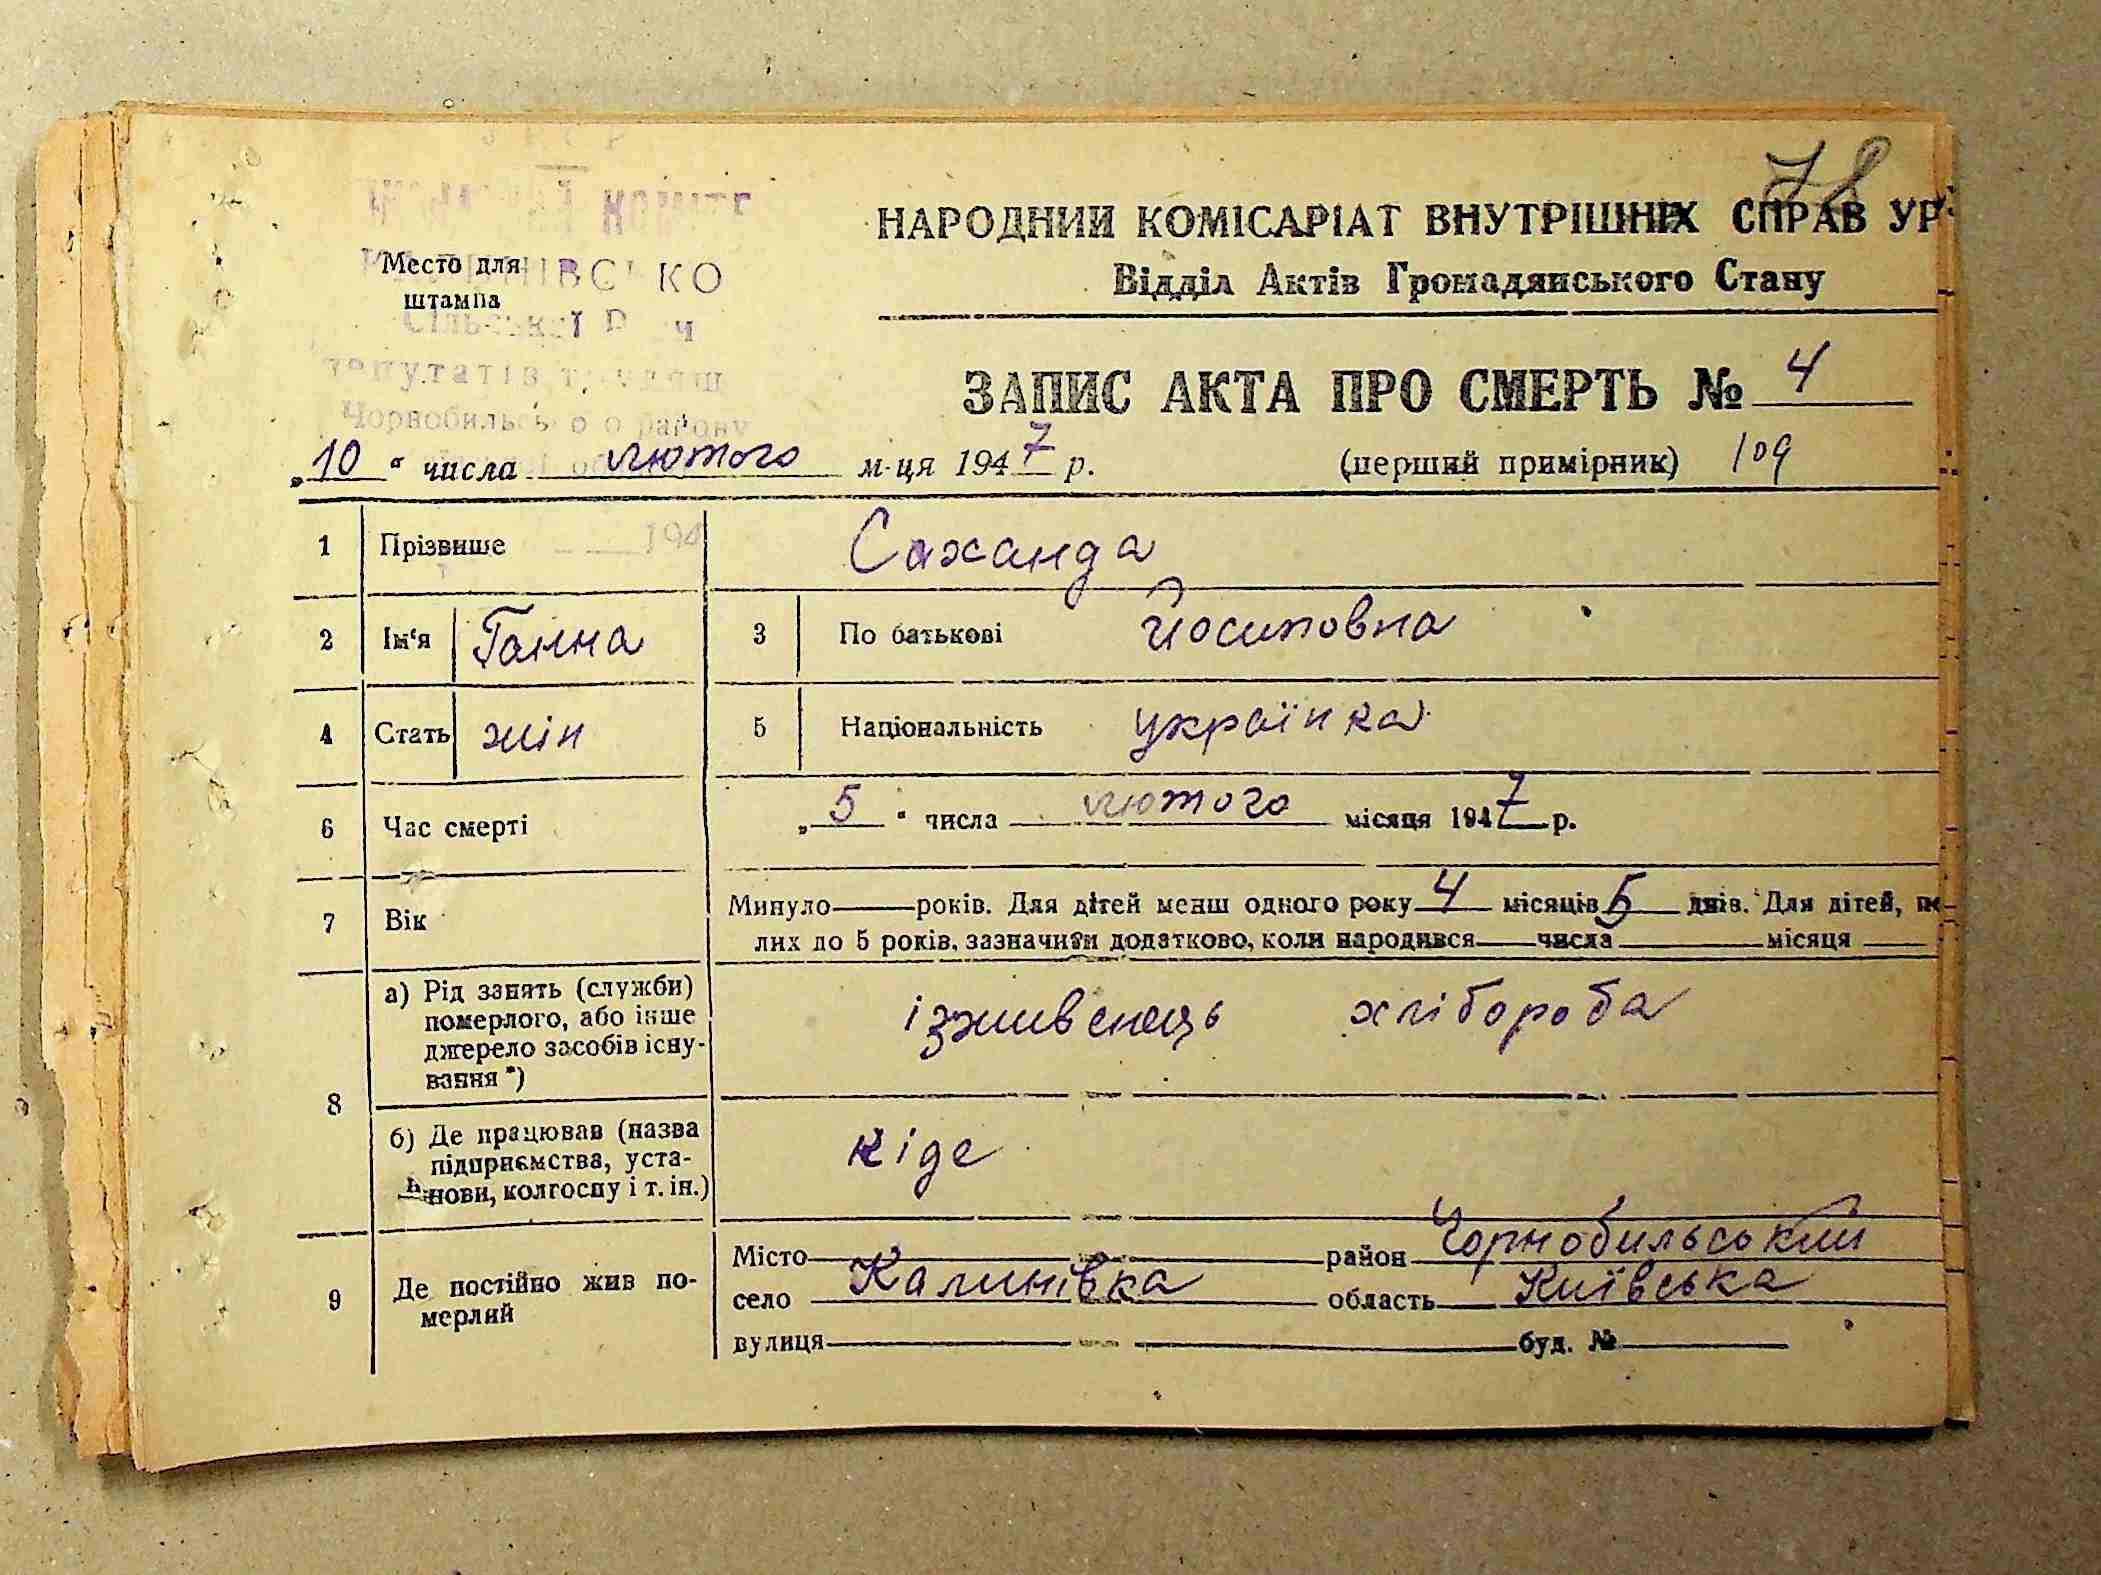 78
НАРОДНИЙ КОМІСАРІАТ ВНУТРІШНІХ СПРАВ УР
Відділ Актів Громадянського Стану
Место для
штампа
КО
Сільської
депутатів
Чорнобильс о о району
ЗАПИС АКТА ПРО СМЕРТЬ № 4
„10“ числа лютого м-ця 1947 р. (перший примірник) 109
1 Прізвище 194 Саханда
2 Ім‘я Ганна 3 По батькові Йосиповна
4 Стать жін 5 Національність українка
6 Час смерті „5“ числа лютого місяця 1947 р.
7 Вік Минуло років. Для дітей менш одного року 4 місяців 5 днів. Для дітей,
лих до 5 років, зазначити додатково, коли народився числа місяця
8 а) Рід занять (служби)
померлого, або інше
джерело засобів існу-
вання *)
ізживенець хлібороба
б) Де працював (назва
підприємства, уста-
нови, колгоспу і т. ін.)
ніде
9 Де постійно жив по-
мерлий
Місто район Чорнобильський
село Калинівка область Київська
вулиця буд. №